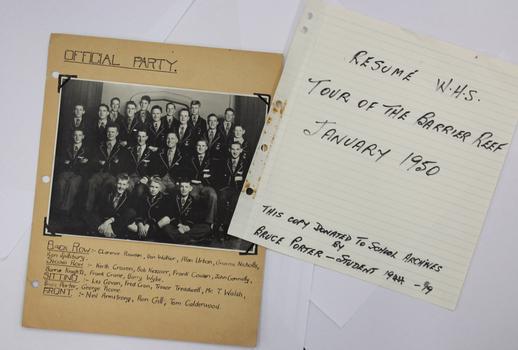 OFFICIAL PARTY.
BACK ROW :- Clarence Rowson, Don Walker, Alan Urban, Graeme Nicholls,
Ken
SECOND ROW :- Keith Craven, Bob Kessner, Frank Cowan, John Connolly,
Barrie Knights, Frank Crane, Barry Wylie.
SITTING :- Les Govan, Fred Cron, Trevor Treadwell, Mr. T. Walsh,
Bruce Porter, George Keane.
FRONT :- Neil Armstrong, Ron Gill, Tom Calderwood.
RESUMÉ W.H.S.
TOUR OF THE BARRIER REEF
JANUARY 1950
THIS COPY DONATED TO SCHOOL ARCHIVES
BY
BRUCE PORTER — STUDENT